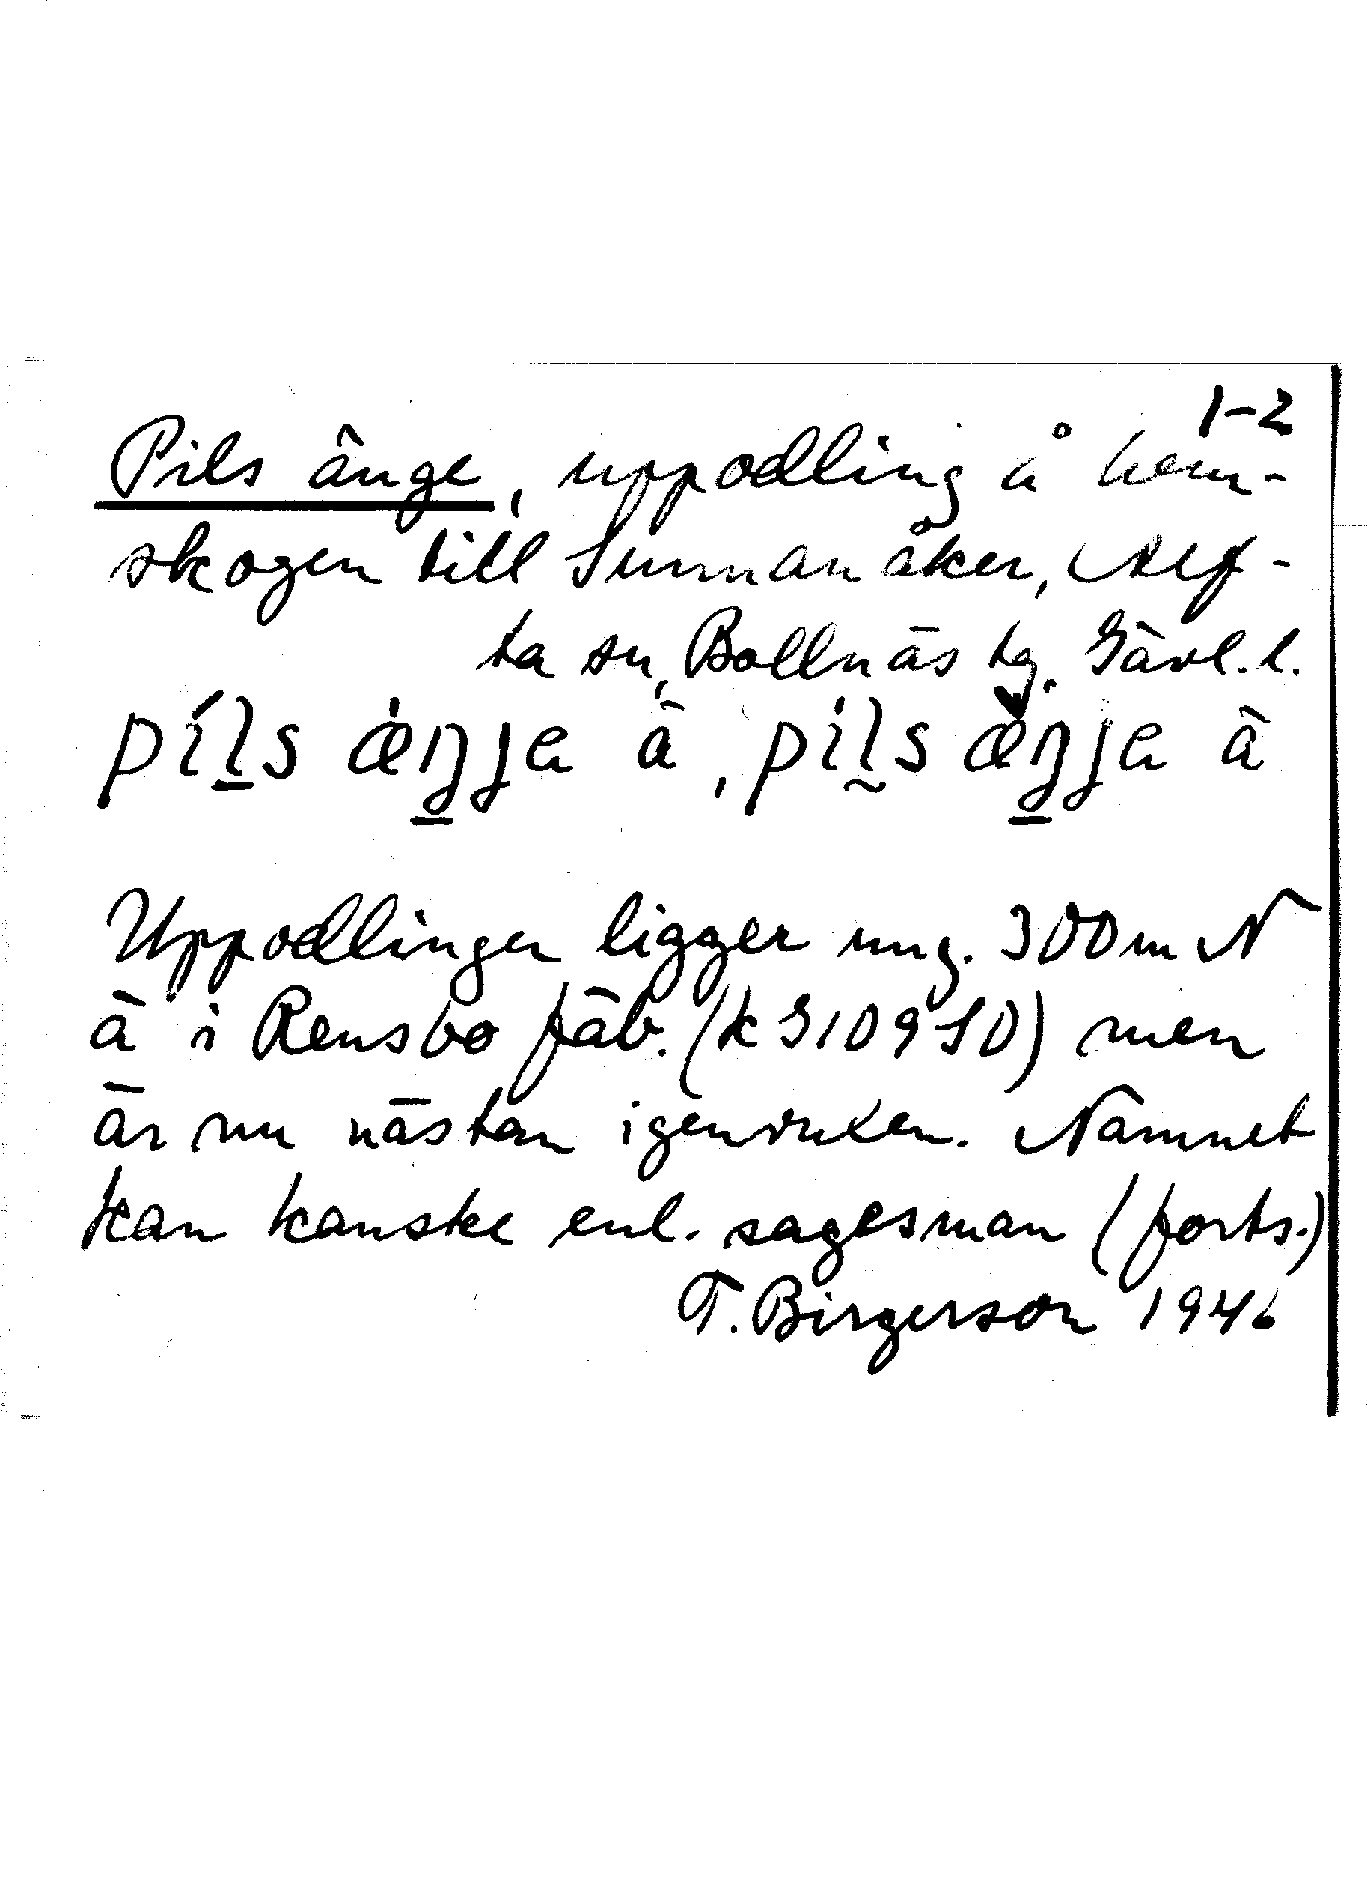 1-2
Pils änge, uppodling å hem-
skogen till Sunnanåker, Alf-
ta sn, Bollnäs tg. Gävl. l.
píl̠s æŋ̠ʃa ä, píl̰s æŋ̠ʃa ä
Uppodlingen ligger ung. 300 m N
ä i Rensbo fäb. (k 310950) men
är nu nästan igenvuxen. Namnet
kan kanske enl. sagesman (forts.)
T. Birgerson 1946